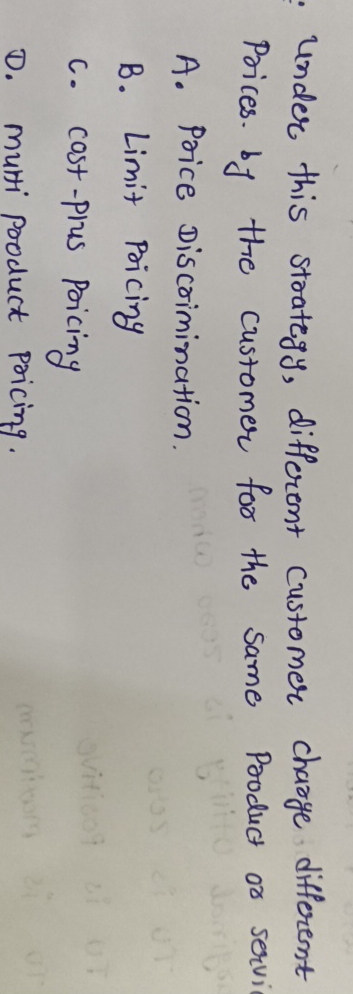 Under this strategy, different customer charge different
Prices. by the customer for the same Product or servi
A. Price Discrimination.
B. Limit Pricing
C. cost-Plus Pricing
D. multi product Pricing.